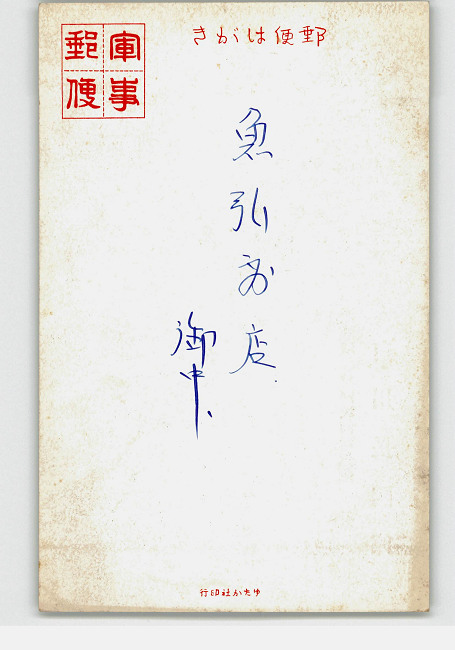 郵便はがき
軍事
郵便
魚弘商店
御中、
ゆたか社印行